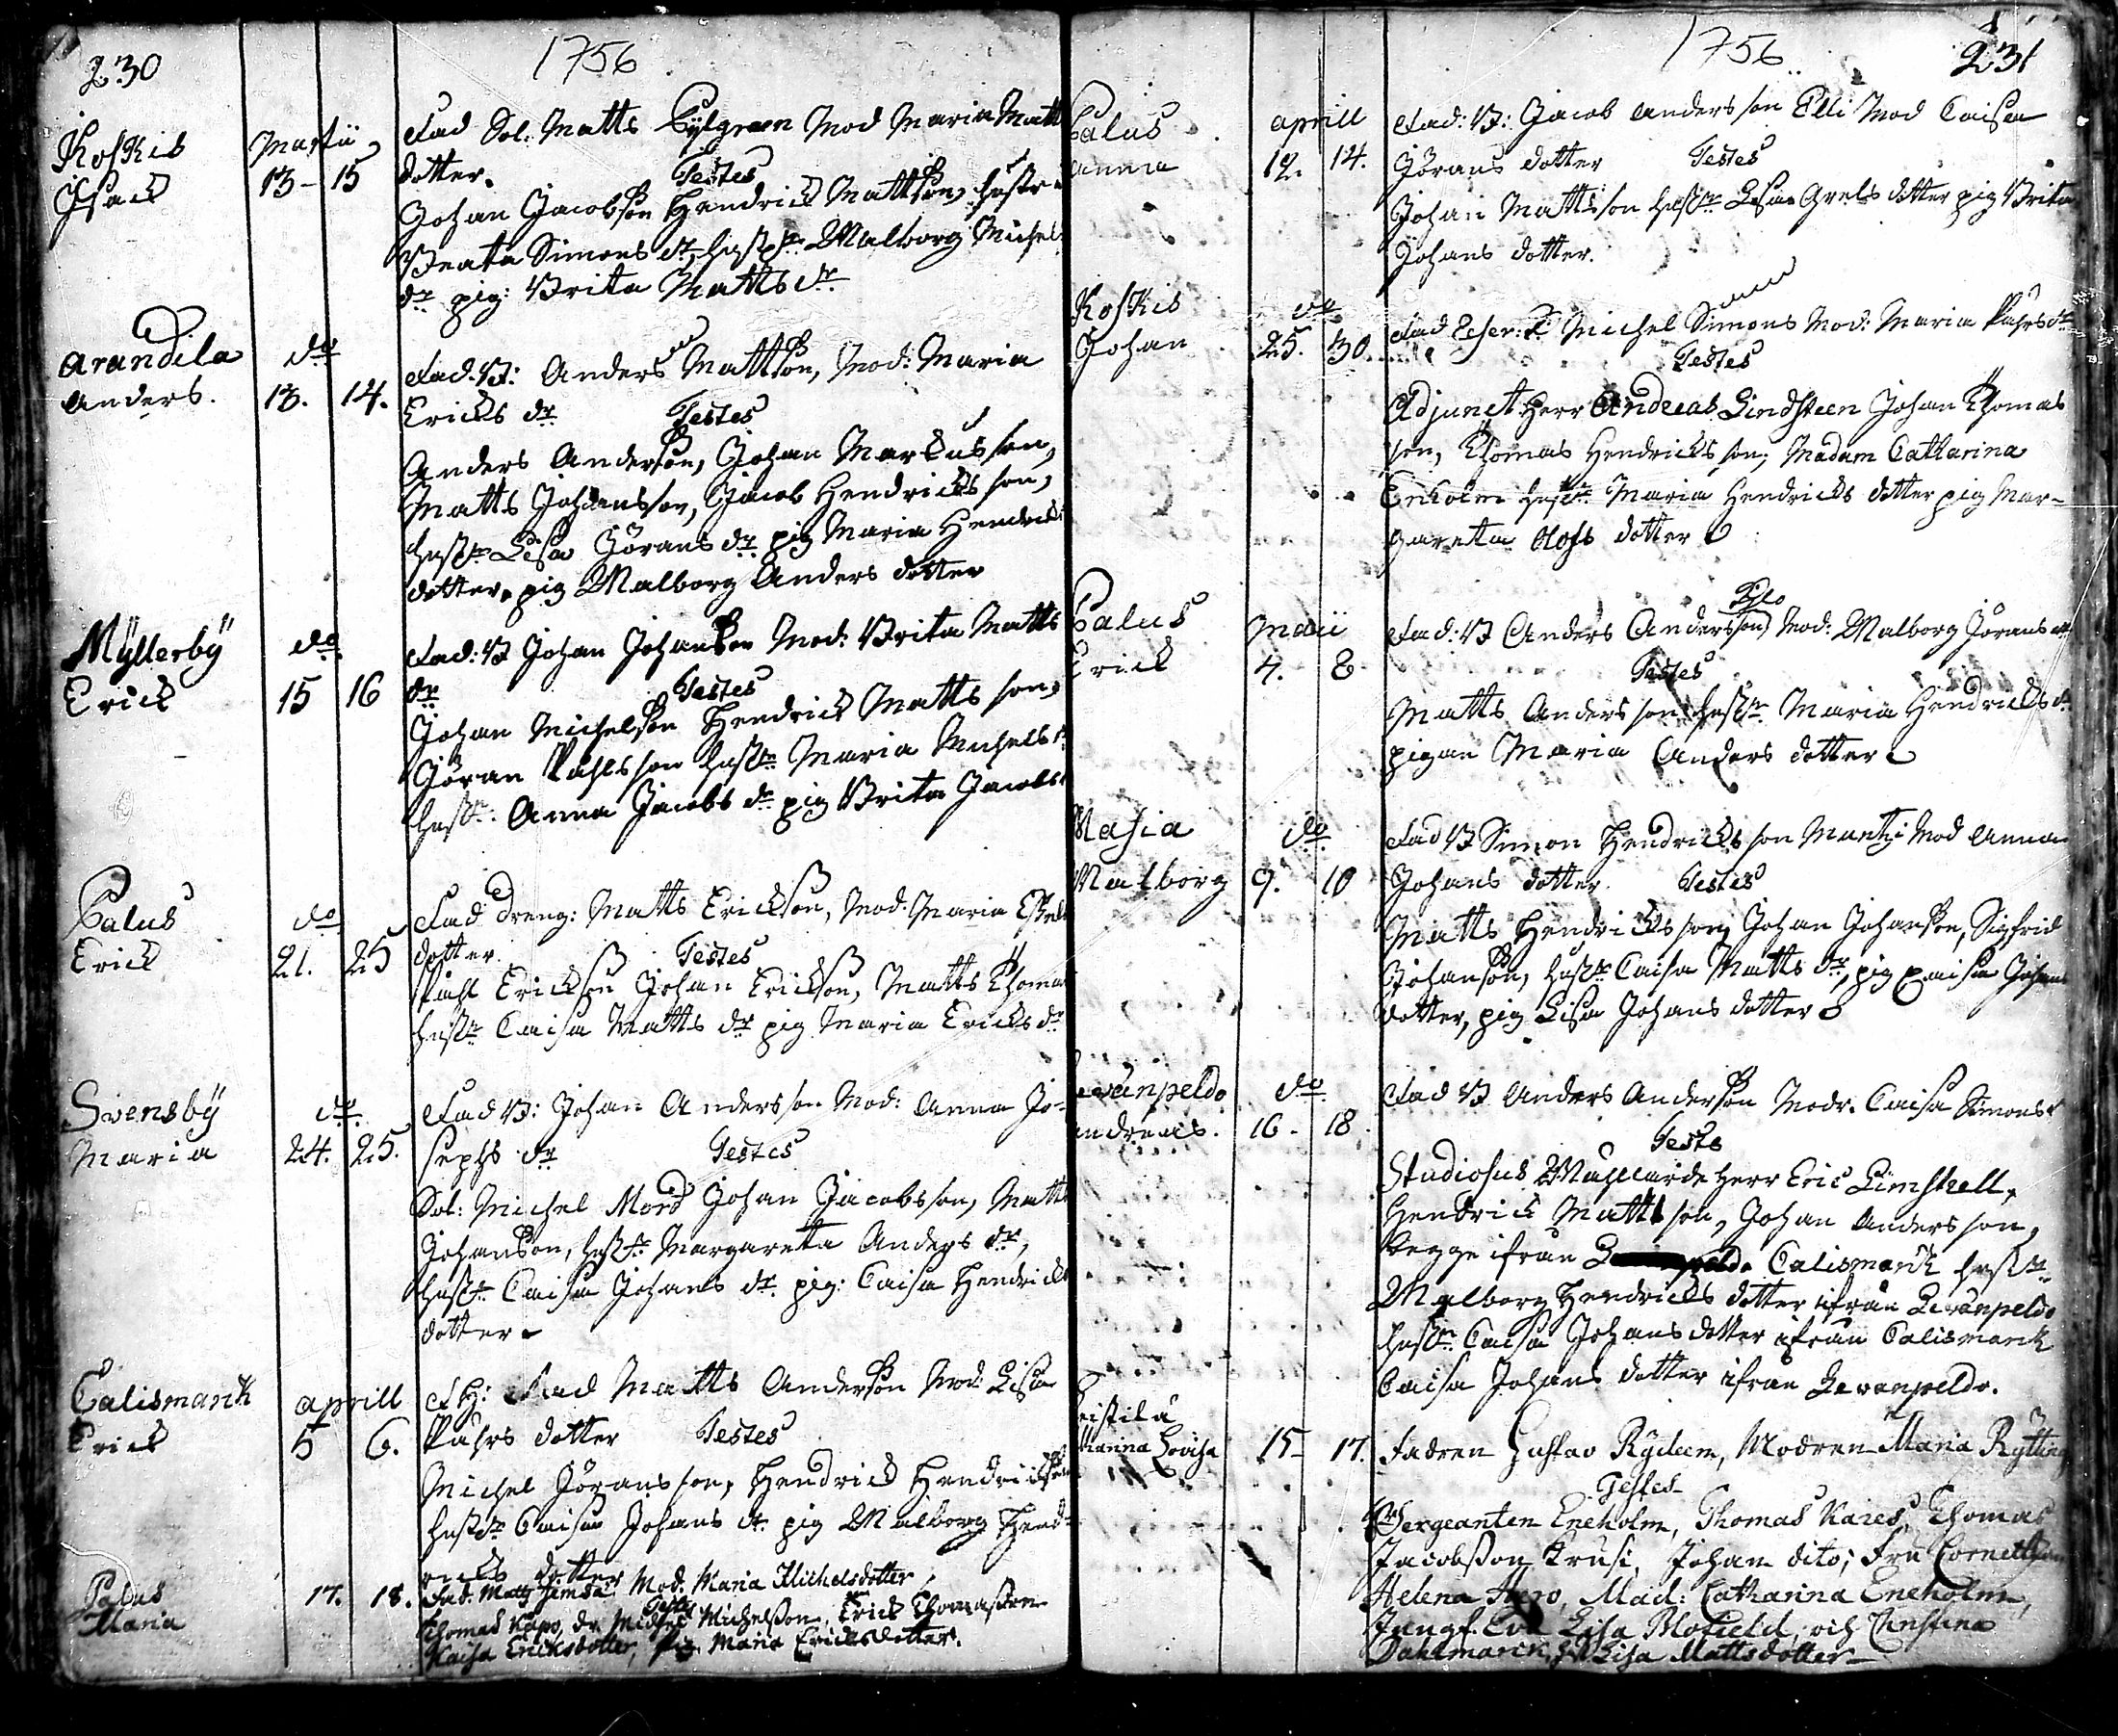 230
1756
Koskis Martii Fad Sol: Matts Bylgreen Mod Maria Matts
Isack 13- 15 dotter. Testes
Johan Jacobson Hendrick Mattson, hustr
Beata Simons dr, hustr Malborg Michels
dr pig: Brita Matts dr
Arandila do Fad: B: Anders Mattson, Mod: Maria
Anders. 13. 14. Ericks dr Testes
Anders Anderson, Johan Markusson,
Matts Johansson, Jacob Hendrickson,
hustr Lisa Jörans dr pig Maria Hendricks
dotter, pig Malborg Anders dotter
Myllerbÿ do Fad: B Johan Johanson Mod: Brita Matts
Erick 15 16 dr Testes
Johan Michelson Hendrick Matts son,
Jöran Påhlsson hustr Maria Michels dr
hustr Anna Jacobs dr pig Brita Jacobs
Palus do Fad Dreng: Matts Erickson, Mod: Maria
Erick 21. 25 dotter. Testes
Påhl Erickson Johan Erickson, Matts Thomas
hustr Caisa Matts dr pig Maria Ericks dr
Svensbÿ do Fad B: Johan Andersson Mod: Anna Jo-
Maria 24. 25. sephs dr Testes
Sol: Michel Mord Johan Jacobsson, Matts
Johanson, hustr Margareta Anders dr,
hustr Caisa Johans dr. pig: Caisa Hendricks
dotter
Calismarck aprill Fad Matts Anderson Mod: Lisa
Erick 5 6. Påhrs dotter Testes
Michel Jöransson, Hendrick Hendrickson
hustr Caisa Johans dr. pig Malborg Hend-
ricks dotter
Palus 17. 18. Fad. Matts Mod. Maria Michelsdotter
Maria Testes
Thomas Kapo, dr. Michel Michelsson, Erick Thomasson
Kaisa Ericksdotter, Pig. Maria Ericksdotter.
1756 231
Palus aprill Fad: B: Jacob Andersson Elli Mod Caisa
Anna 12. 14. Jörans dotter Testes
Johan Mattsson hustr Lisa Grels dotter pig Brita
Johans dotter.
Koskis do Fad Michel Simons Mod: Maria Påhrs dr
Johan 25. 30. Testes
Adjunct Herr Andreas Lindsteen Johan Thomas
son, Thomas Hendricksson, Madam Catharina
Enholm hustr Maria Hendricks dotter pig Mar-
gareta Olofs dotter
Palus maii Fad: B Anders Andersson Mod: Malborg Jörans dr
Erick 4. 8 Testes
Matts Andersson hustr Maria Hendricks dr
pigan Maria Anders dotter
Masia do Fad B Simon Hendricksson Mod Anna
Malborg 9. 10 Johans dotter Testes
Matts Hendricksson, Johan Johanson, Sigfrid
Johanson, hustr Caisa Matts dr, pig Caisa Johans
dotter, pig Lisa Johans dotter
Levanpeldo do Fad B Anders Anderson Modr. Caisa Simons dr
Andreas. 16- 18 Tests
Studiosus Herr Eric Limstell,
Hendrick Mattsson, Johan Andersson,
begge ifrån Calismarck hustr
Malborg Hendricks dotter ifrån Levanpeldo
hustr Caisa Johans dotter ifrån Calismarck
Caisa Johans dotter ifrån Levanpeldo.
Cathrina Lovisa 15- 17. Fadren Gustav Rydeen, Modren Maria Rytting
Testes
Sergeanten Eneholm, Thomas Kares, Thomas
Jacobsson Krusi, Johan dito; Fru
Helena Haro, Mad: Catharina Eneholm,
Jungf. Eva Lisa Mofield, och Christina
Dahlmarck, Lisa Mattsdotter